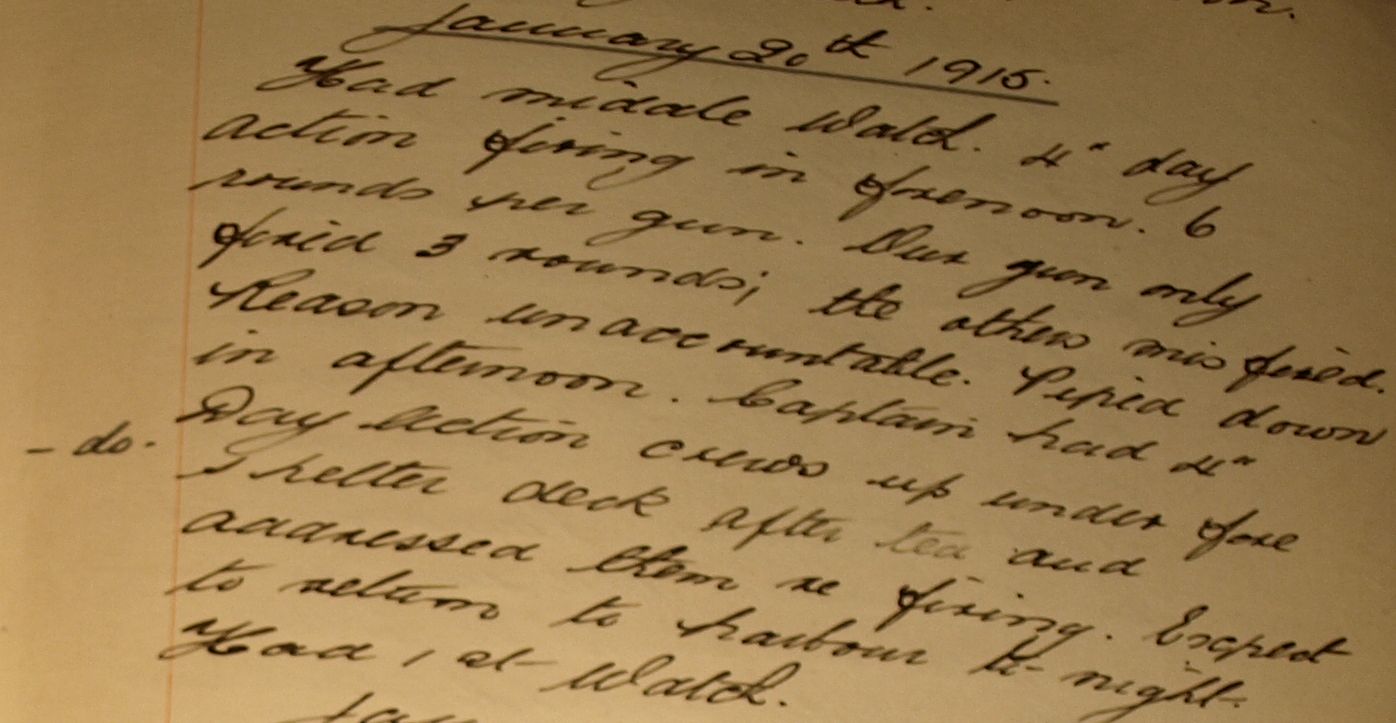 January 20th 1915.
Had middle Watch. 4" day
action firing in forenoon. 6
rounds per gun. Our gun only
fired 3 rounds; the others misfired.
Reason unaccountable. Piped down
in afternoon. Captain had 4"
Day Action crews up under fore
- do. Shelter deck after tea and
addressed them re firing. Expect
to return to harbour to-night.
Had 1st Watch.